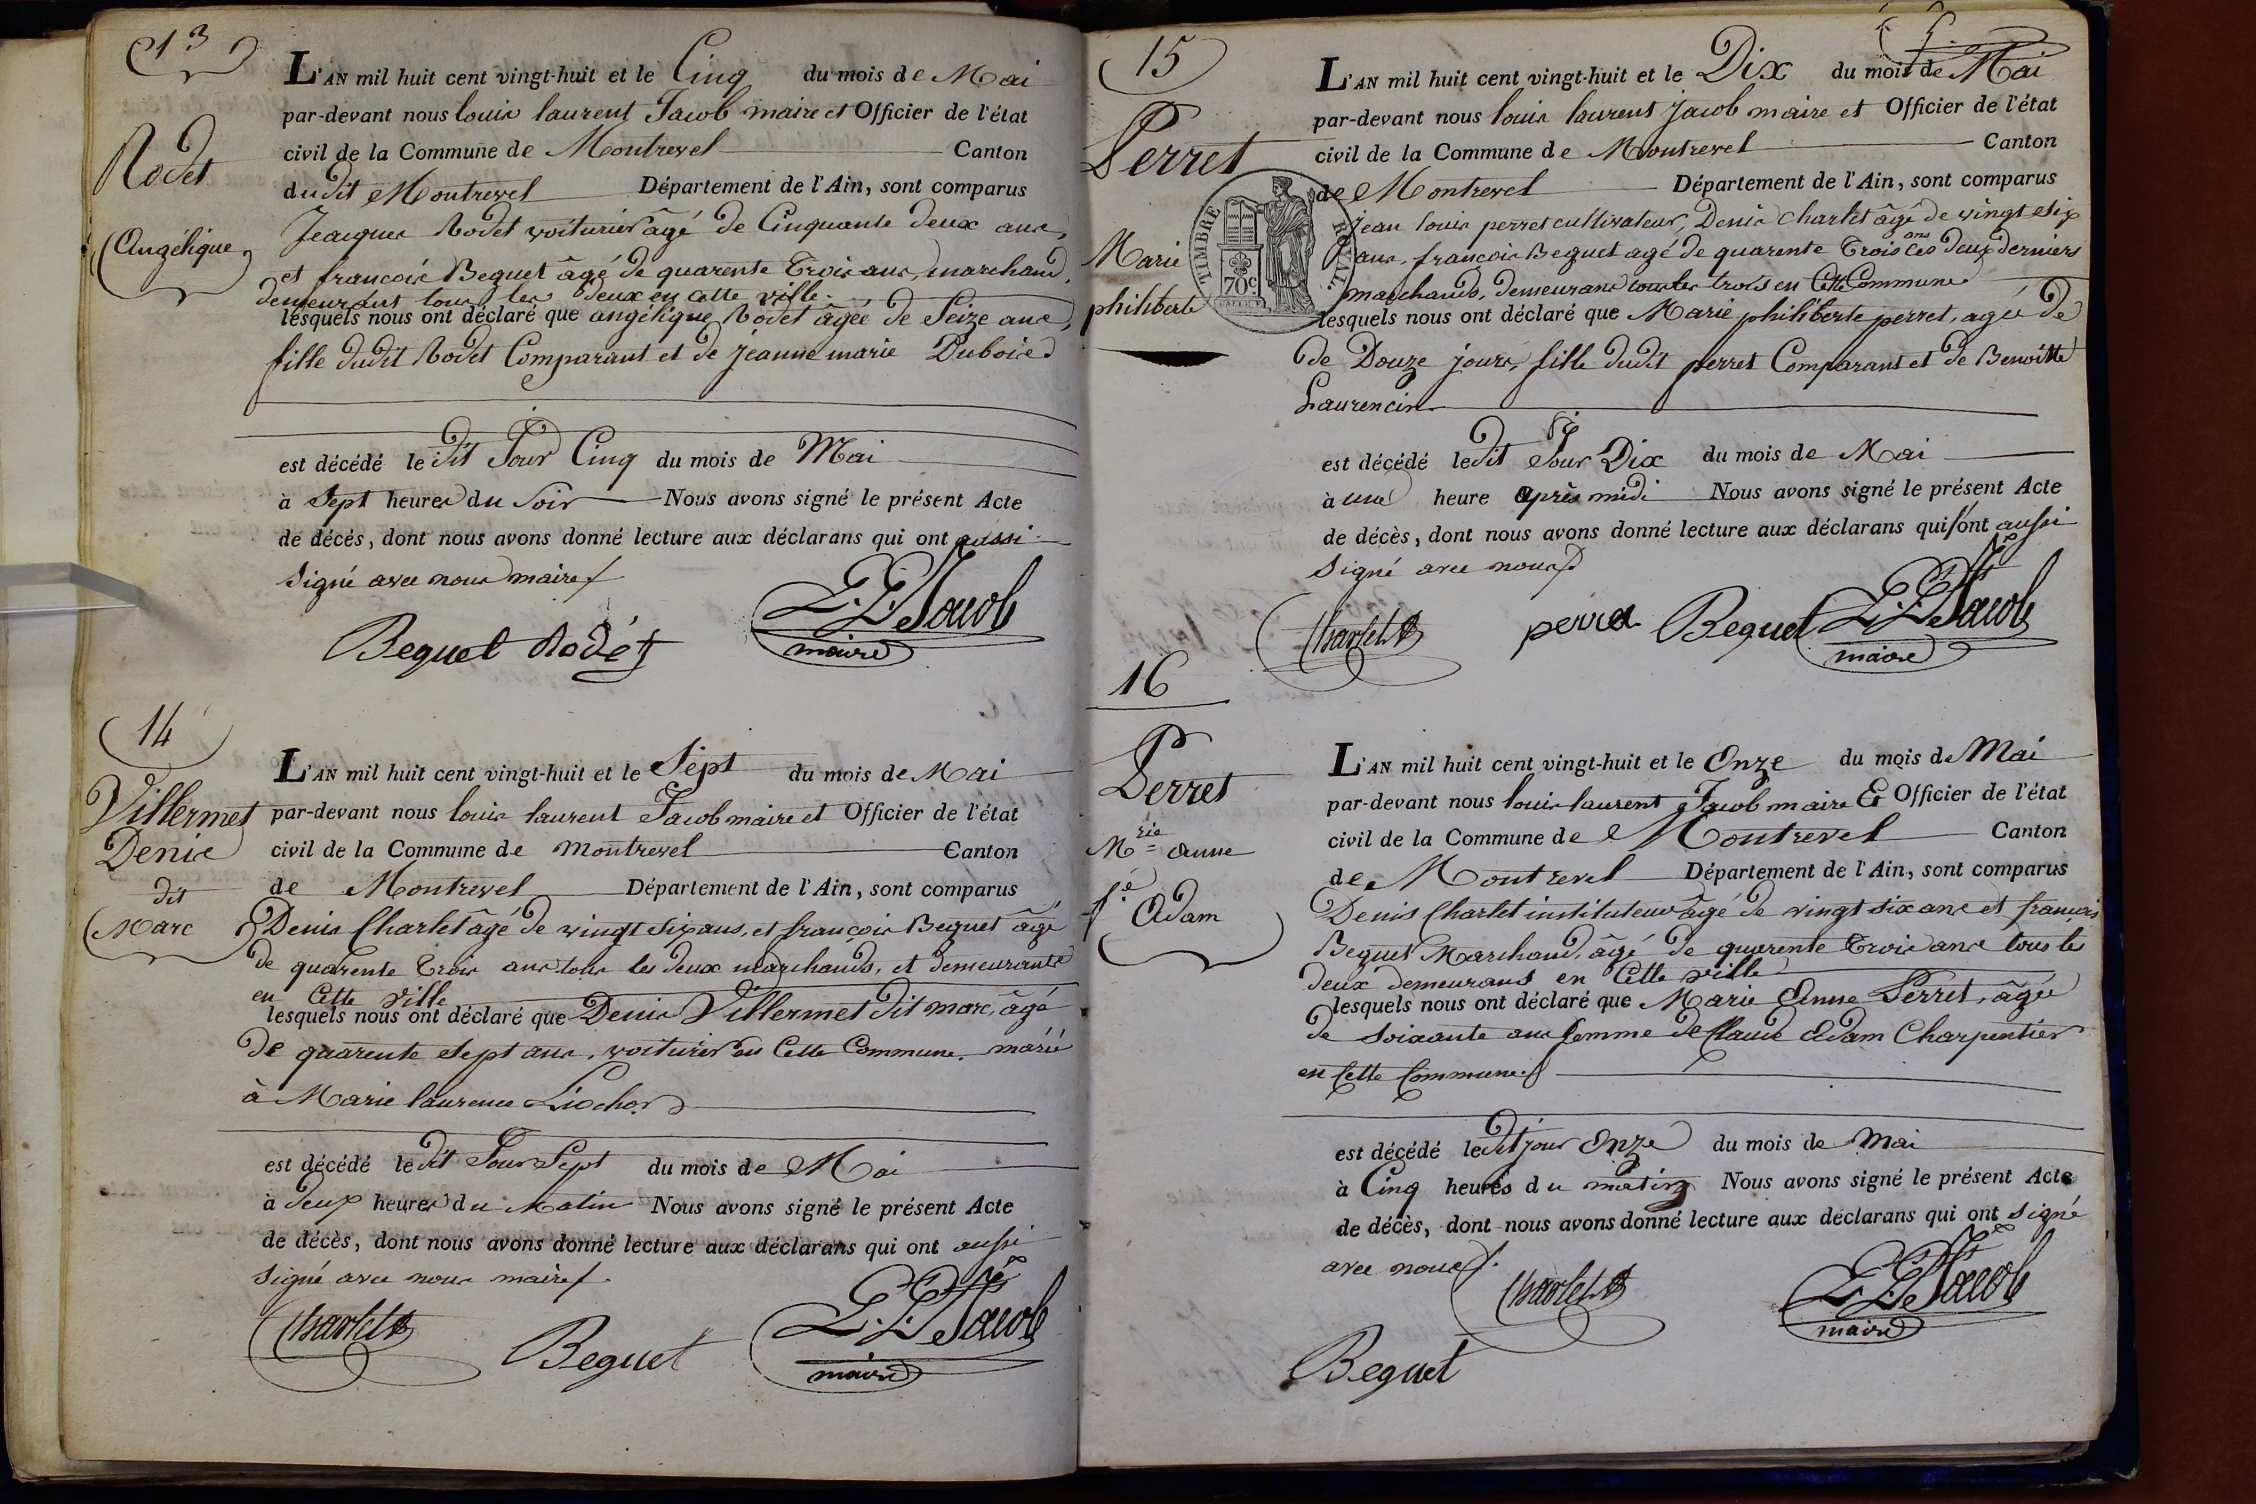 13
Rodet
Angélique
L'AN mil huit cent vingt-huit et le Cinq du mois de Mai
par-devant nous louis laurent Jacob maire et Officier de l'état
civil de la Commune de Montrevel Canton
dudit Montrevel Département de l'Ain, sont comparus
Jeacques Rodet voiturier âgé de Cinquante deux ans,
et françois Beguet âgé de quarente trois ans, marchand,
demeurant tous les deux en cette ville.
lesquels nous ont déclaré que angélique Rodet âgée de Seize ans,
fille dudit Rodet Comparant et de jeanne marie Dubois
est décédé ledit Jour Cinq du mois de Mai
à Sept heures du Soir Nous avons signé le présent Acte
de décès, dont nous avons donné lecture aux déclarans qui ont aussi
signé avec nous maire
Beguet Rodét L. L. Jacob
maire
14
Villermet
Denis
dit
Marc
L'AN mil huit cent vingt-huit et le Sept du mois de Mai
par-devant nous louis laurent Jacob maire et Officier de l'état
civil de la Commune de montrevel Canton
de Montrevel Département de l'Ain, sont comparus
Denis Charlet âgé de vingt six ans, et françois Beguet âgé
de quarente trois ans tous les deux marchands, et demeurants
en Cette ville
lesquels nous ont déclaré que Denis Villermet dit marc, âgé
de quarente sept ans, voiturier en Cette Commune. marié
à Marie laurence Liochor
est décédé ledit Jour Sept du mois de Mai
à deux heures du Matin Nous avons signé le présent Acte
de décès, dont nous avons donné lecture aux déclarans qui ont aussi
signé avec nous maire
Charlet Beguet L. L. Jacob
maire
15
Perret
Marie
philiberte
TIMBRE ROYAL.
70c.
L'AN mil huit cent vingt-huit et le Dix du mois de Mai
par-devant nous louis laurent jacob maire et Officier de l'état
civil de la Commune de Montrevel Canton
de Montrevel Département de l'Ain, sont comparus
jean louis perret cultivateur, Denis Charlet âgé de vingt six
ans, françois Beguet agé de quarente trois ans ces deux derniers
marchands, demeurans tous les trois en Cette Commune
lesquels nous ont déclaré que Marie philiberte perret, agée de
de Douze jours, fille dudit perret Comparant et de Benoitte
Laurencin
est décédé ledit Jour Dix du mois de Mai
à une heure après midi Nous avons signé le présent Acte
de décès, dont nous avons donné lecture aux déclarans qui ont aussi
signé avec nous
Charlet perret Beguet L. L. Jacob
maire
16
Perret
Mrie anne
fe Adam
L'AN mil huit cent vingt-huit et le Onze du mois de Mai
par-devant nous louis laurent Jacob maire & Officier de l'état
civil de la Commune de Montrevel Canton
de Montrevel Département de l'Ain, sont comparus
Denis Charlet instituteur âgé de vingt six ans et françois
Beguet Marchand, âgé de quarente trois ans tous les
deux demeurans en Cette ville
lesquels nous ont déclaré que Marie Anne Perret, âgée
de soixante ans femme de Claude Adam Charpentier
en Cette Commune
est décédé ledit jour Onze du mois de Mai
à Cinq heures du matin Nous avons signé le présent Acte
de décès, dont nous avons donné lecture aux déclarans qui ont signé
avec nous
Charlet L. L. Jacob
maire
Beguet